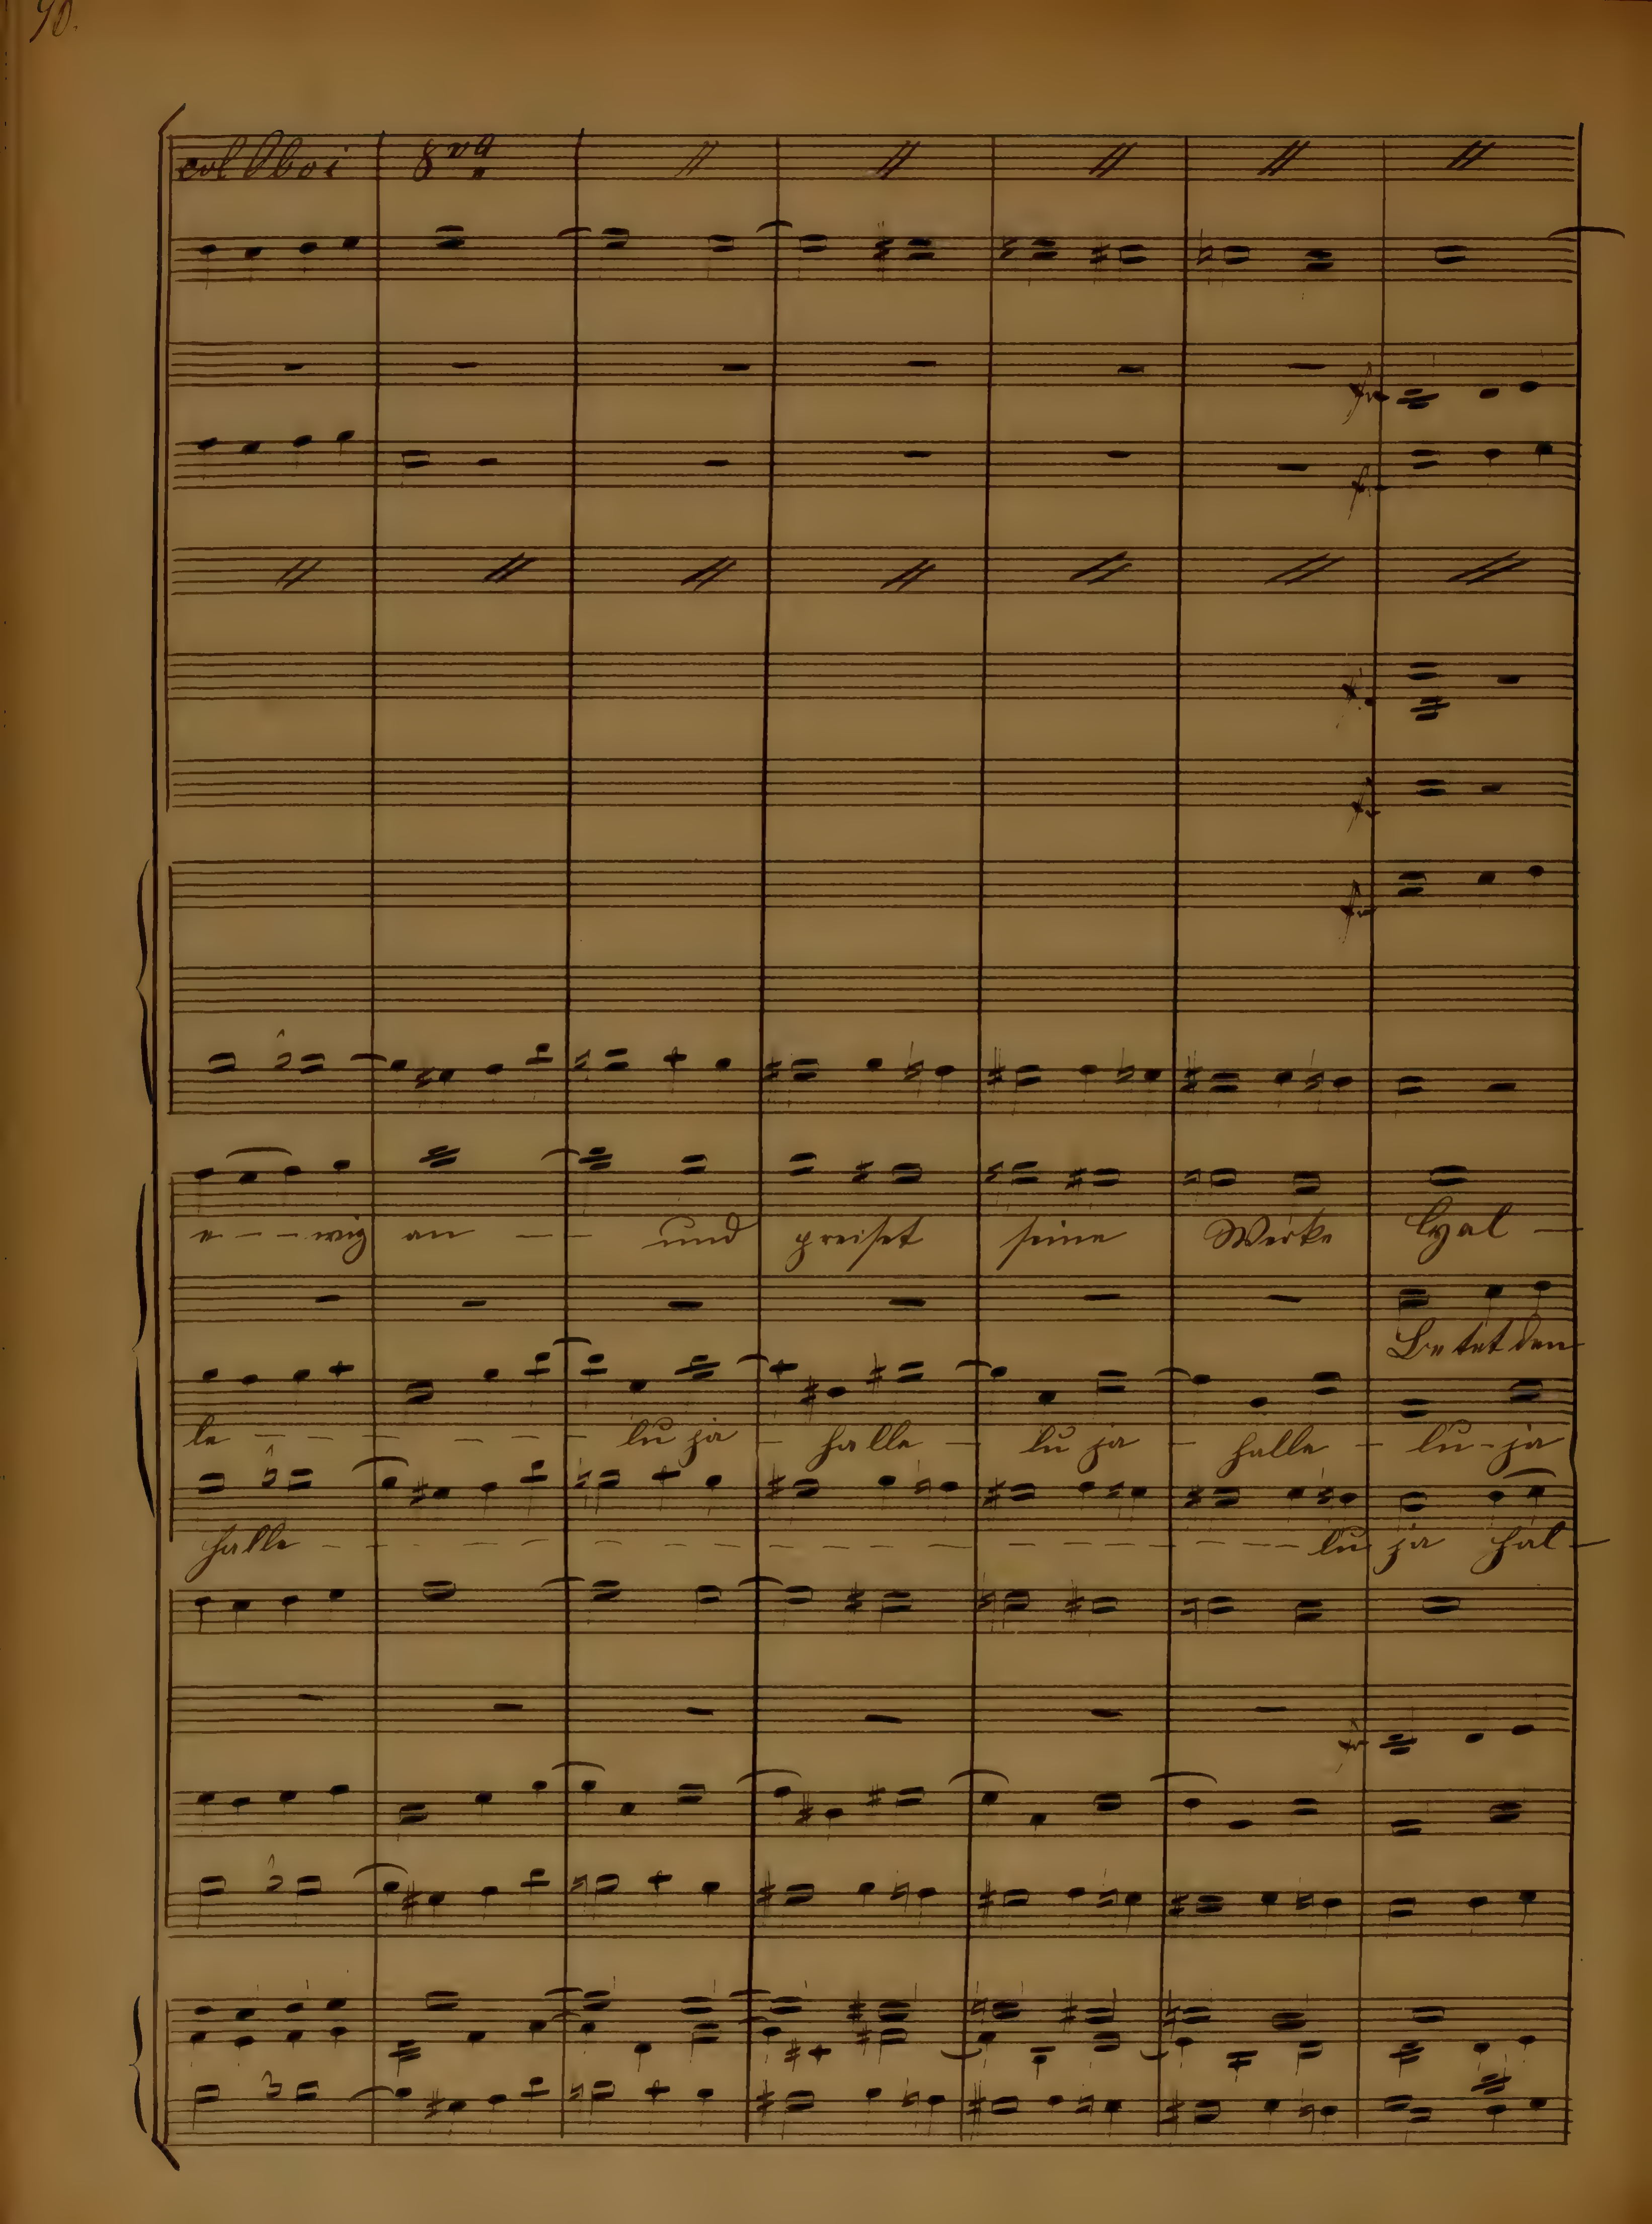 90.
col Oboi 8va
e - - - wig an - - - und preiset seine Werke Hal -
Betet den
le - - - - - - lu ja - halle - lu ja - halle - lu - ja
halle - - - - - - - - - - - - - - lu ja hal -